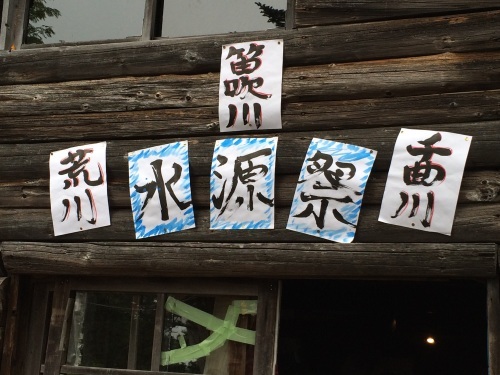 笛吹川
荒川
水源祭
千曲川